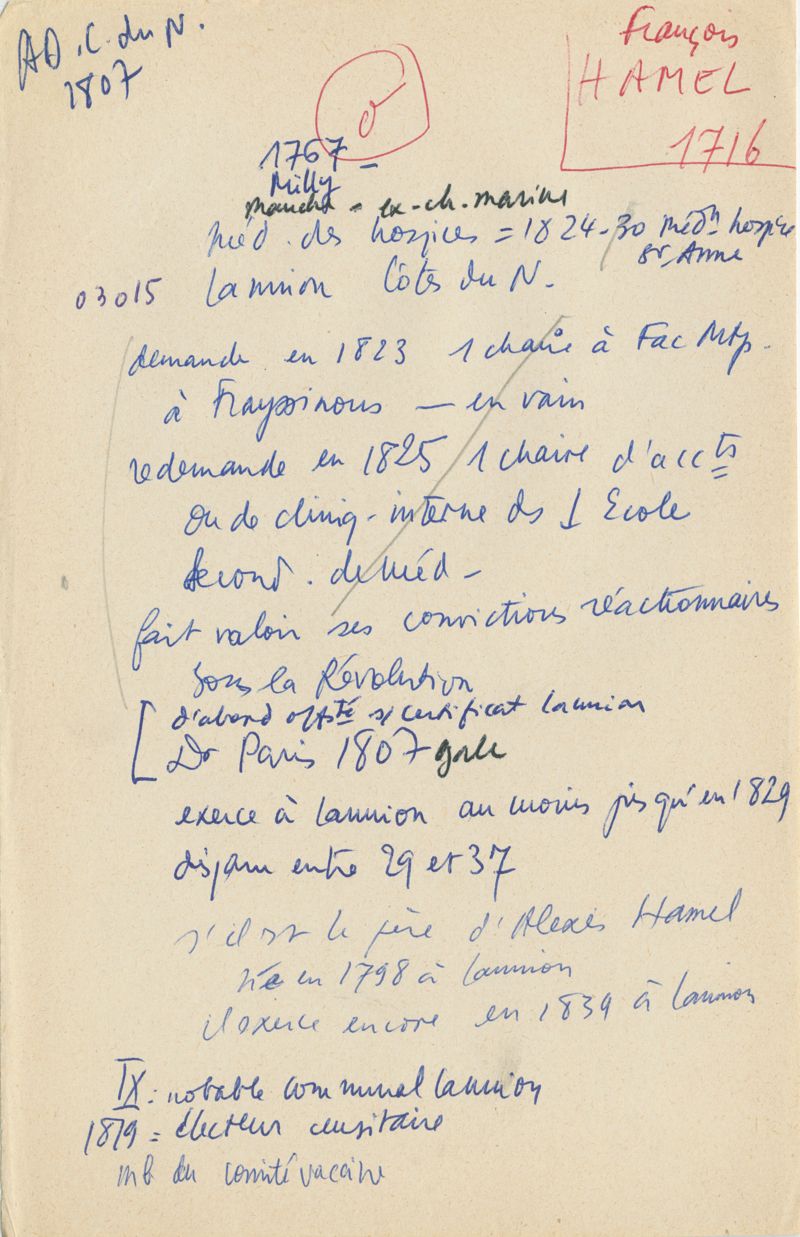 AD. C. du N.
1807
François
HAMEL
1716
1767 -
Milly
manche - ex-ch. marine
méd. des hospices = 1824-30 médn hospice
St. Anne
03015 Lannion Côtes du N.
demande en 1823 1 chaire à Fac Mtp.
à Frayssinous — en vain
redemande en 1825 1 chaire d'accts
ou de cliniq. interne ds 1 Ecole
second. de Méd -
fait valoir ses convictions réactionnaires
sous la Révolution
d'abord off sté s/ certificat Lannion
Dr Paris 1807 gale
exerce à Lannion au moins jusqu'en 1829
disparu entre 29 et 37
s'il est le père d'Alexis Hamel
né en 1798 à Lannion
il exerce encore en 1839 à Lannion
IX : notable communal Lannion
1819 = électeur censitaire
mb du comité vaccine